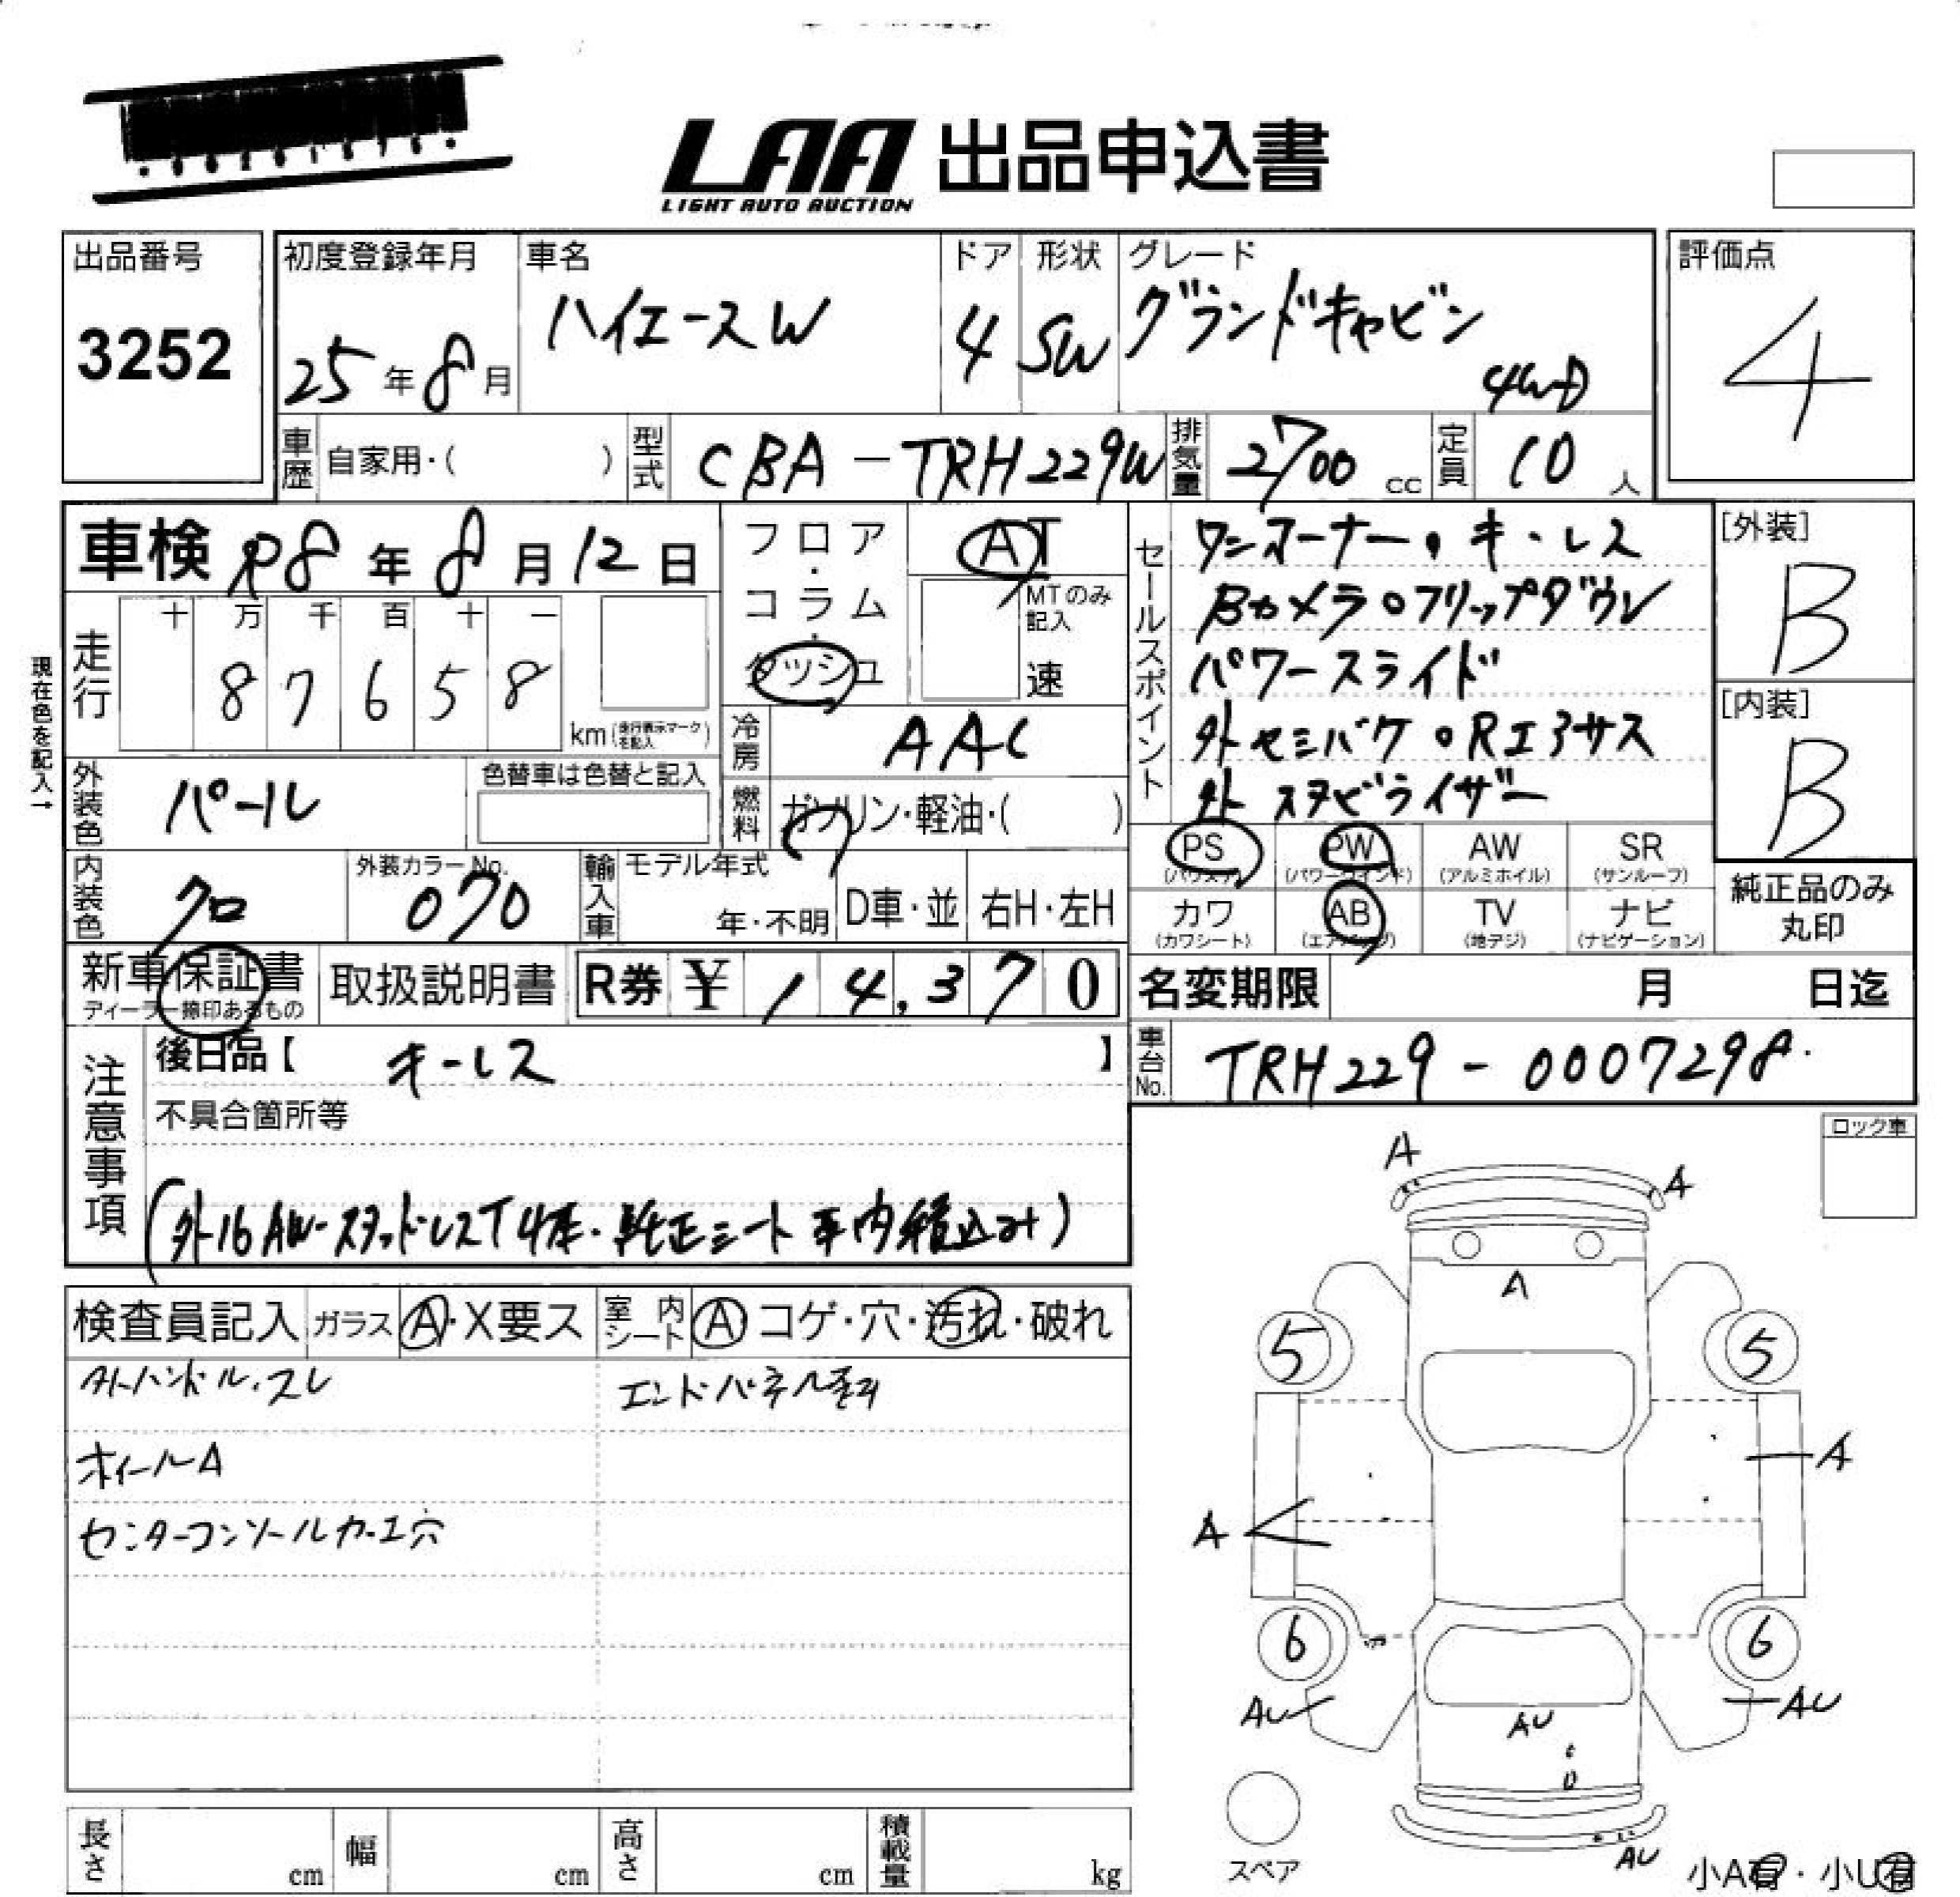 LAA 出品申込書
LIGHT AUTO AUCTION
出品番号
3252
初度登録年月
25年8月
車名
ハイエースW
ドア
4
形状
SW
グレード
グランドキャビン
4WD
評価点
4
車歴 自家用・( )
型式 CBA-TRH229W
排気量 2700 cc
定員 10 人
車検 R8年8月12日
フロア・コラム・ダッシュ
AT
MTのみ記入
速
セールスポイント
ワンオーナー・キーレス
Bカメラ・フリップダウン
パワースライド
外セミバケ・Rエアサス
外スタビライザー
[外装]
B
[内装]
B
現在色を記入→
走行
十 万 千 百 十 一
8 7 6 5 8
km (走行表示マークを記入)
冷房 AAC
燃料 ガソリン・軽油・( )
外装色 パール
色替車は色替と記入
内装色 クロ
外装カラーNo.
070
輸入車 モデル年式
年・不明 D車・並 右H・左H
PS (パワステ)
PW (パワーウインド)
AW (アルミホイル)
SR (サンルーフ)
カワ (カワシート)
AB (エアバッグ)
TV (地デジ)
ナビ (ナビゲーション)
純正品のみ
丸印
新車保証書
ディーラー捺印あるもの
取扱説明書
R券 ¥ 14,370
名変期限 月 日迄
注意事項
後日品【 キーレス 】
不具合箇所等
(外16AW-スタッドレスT4本・純正シート車内積込み)
車台No. TRH229-0007298
ロック車
検査員記入
ガラス A・X要ス
室内シート A コゲ・穴・汚れ・破れ
外ハンドル・スレ
エンドパネル歪ミ
ホイールA
センターコンソールカ工穴
A
A
A
5
5
A
A
6
6
AU
AU
AU
AU
スペア
小A有・小U有
長さ cm
幅 cm
高さ cm
積載量 kg